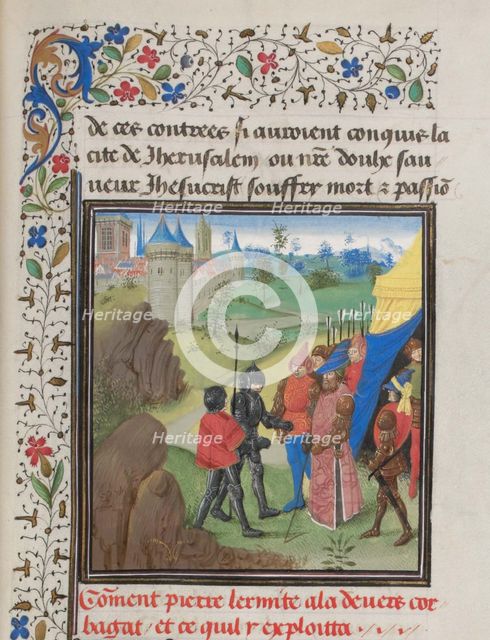 de ces contrees si auroient conquis la
cite de Jherusalem ou nre doulx sau
ueur Jhesucrist souffry mort & passiõ
Heritage Heritage
Heritage Heritage
C
Heritage Heritage
Heritage Heritage
Cõment pierre lermite ala deuers cor
bagat, et ce quil y exploitta